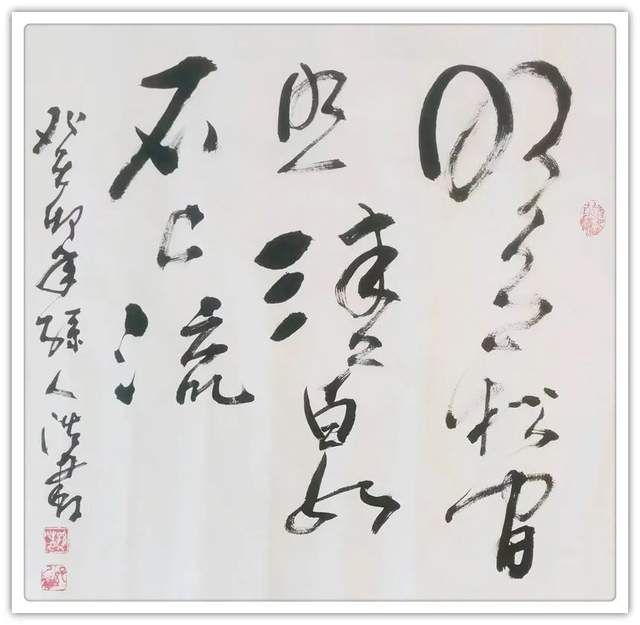 明月松間
照清泉
石上流
癸卯年 人浩書